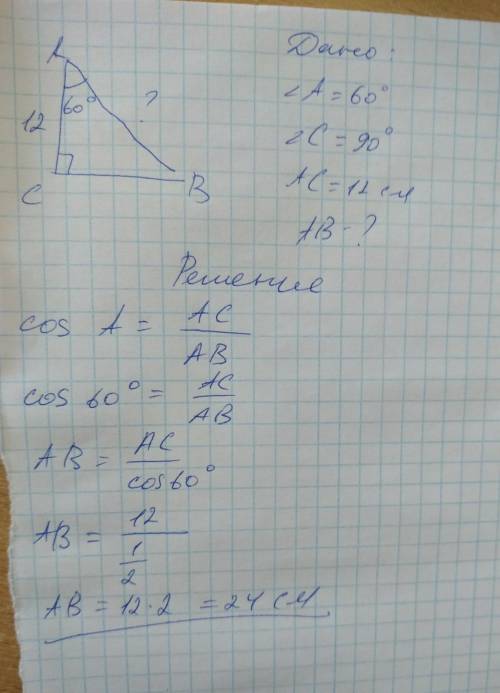 A
60°
?
12
C
B
Дано:
∠A = 60°
∠C = 90°
AC = 12 см
AB - ?
Решение
cos A = AC / AB
cos 60° = AC / AB
AB = AC / cos60°
AB = 12 / 1/2
AB = 12·2 = 24 см